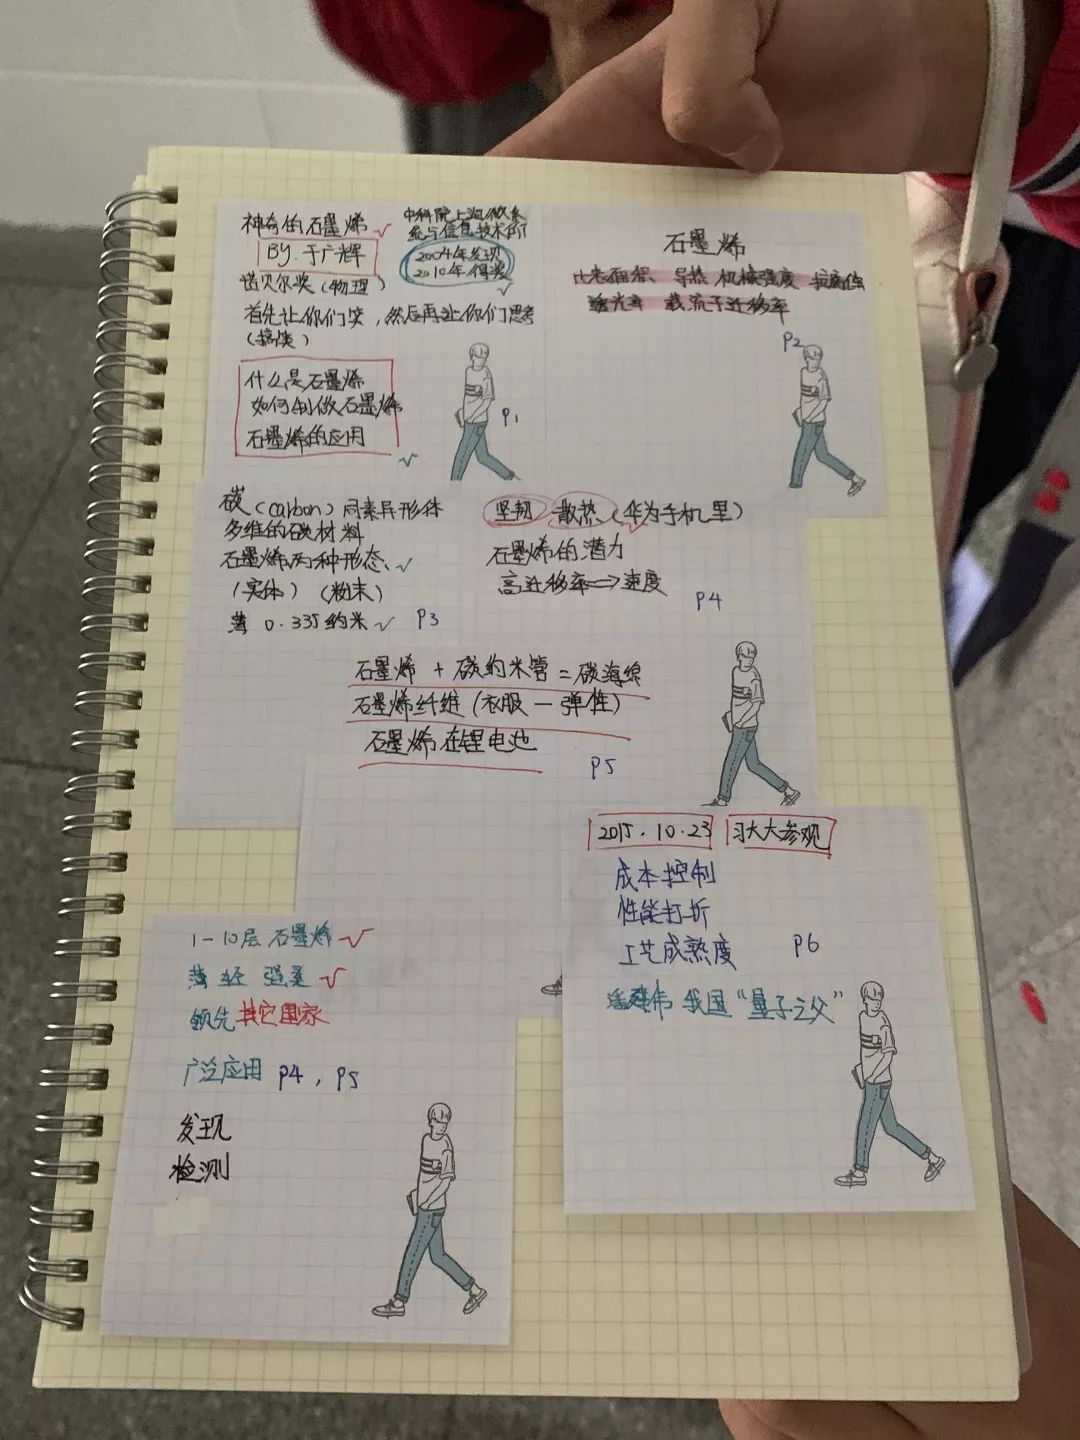 神奇的石墨烯
BY.于广辉
中科院上海微系
统与信息技术所
2004年发现
2010年得奖
诺贝尔奖(物理)
首先让你们笑,然后再让你们思考
(搞笑)
什么是石墨烯
如何制做石墨烯
石墨烯的应用
P1
石墨烯
比表面积 导热 机械强度 抗腐蚀
透光率 载流子迁移率
P2
碳(carbon)同素异形体
多维的碳材料
石墨烯两种形态、
(实体)(粉末)
薄 0.335纳米
P3
坚韧 散热(华为手机里)
石墨烯的潜力
高迁移率⇒速度
P4
石墨烯 + 碳纳米管 = 碳海绵
石墨烯纤维(衣服一弹性)
石墨烯在锂电池
P5
2015.10.23 习大大参观
成本控制
性能打折
工艺成熟度
P6
潘建伟 我国“量子之父”
1-10层 石墨烯
薄 轻 强柔
领先其它国家
广泛应用 P4, P5
发现
检测